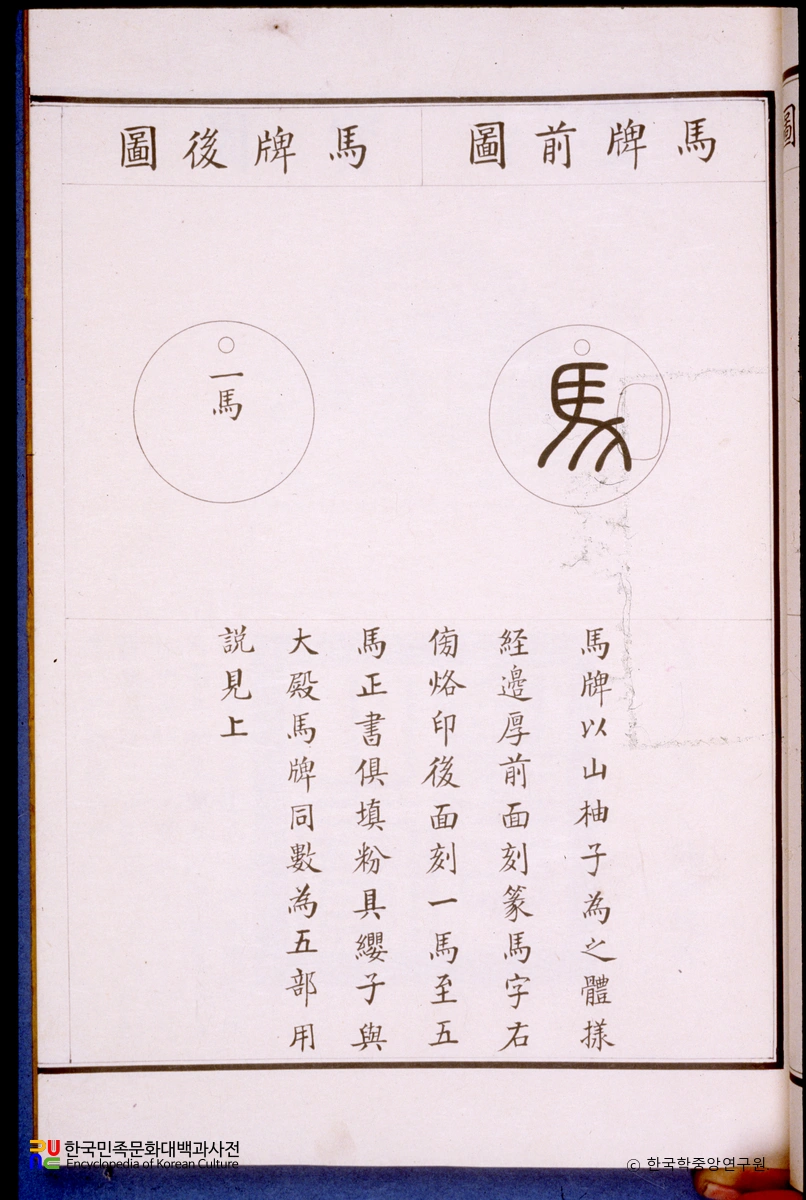 馬牌前圖
馬牌後圖
馬
一馬
馬牌以山柚子為之體樣
経邉厚前面刻篆馬字右
傍烙印後面刻一馬至五
馬正書俱填粉具纓子與
大殿馬牌同數為五部用
説見上
圖
한국민족문화대백과사전
Encyclopedia of Korean Culture
© 한국학중앙연구원